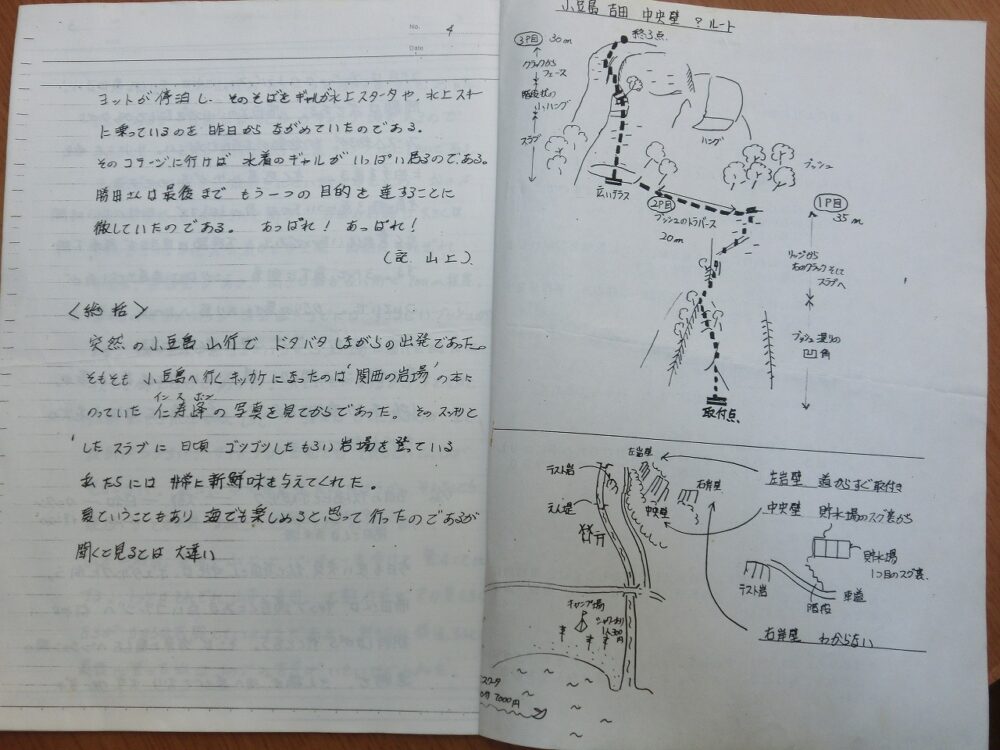 No. 4
Date
ヨットが停泊し、そのそばをギャルが水上スクータや、水上スキー
に乗っているのを昨日からながめていたのである。
そのコテージに行けば水着のギャルがいっぱい居るのである。
勝田さんは最後までもう一つの目的を達することに
徹していたのである。 あっぱれ! あっぱれ!
(記 山上)
<総括>
突然の小豆島山行でドタバタしながらの出発であった。
そもそも小豆島へ行くキッカケになったのは'関西の岩場'の本に
インスボン
のっていた仁寿峰の写真を見てからであった。そのスッキリと
したスラブに日頃ゴツゴツしたもろい岩場を登っている
私たちには非常に新鮮味を与えてくれた。
夏ということもあり海でも楽しめると思って行ったのであるが
聞くと見るとは大違い
小豆島 吉田 中央壁 ?ルート
3P目 30m
終了点
クラックから
フェース
階段状の
小ハング
スラブ
ハング
ブッシュ
広いテラス
2P目
ブッシュのトラバース
20m
1P目
35m
リッジから
右のクラックそして
スラブへ
ブッシュ混りの
凹角
取付点
左岩壁
テスト岩
右岸壁
えん堤
中央壁
左岩壁 道からすぐ取付き
中央壁 貯水場のスグ裏から
貯水場
1つ目のスグ裏
テスト岩
階段
車道
右岸壁 わからない
キャンプ場
シャワー有り
1人300円
スクータ
7000円